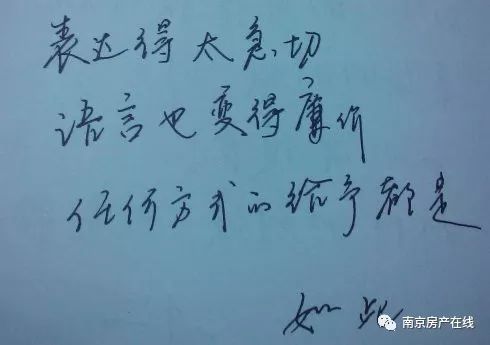 表达得太急切
语言也变得廉价
任何方式的给予都是
如此
南京房产在线